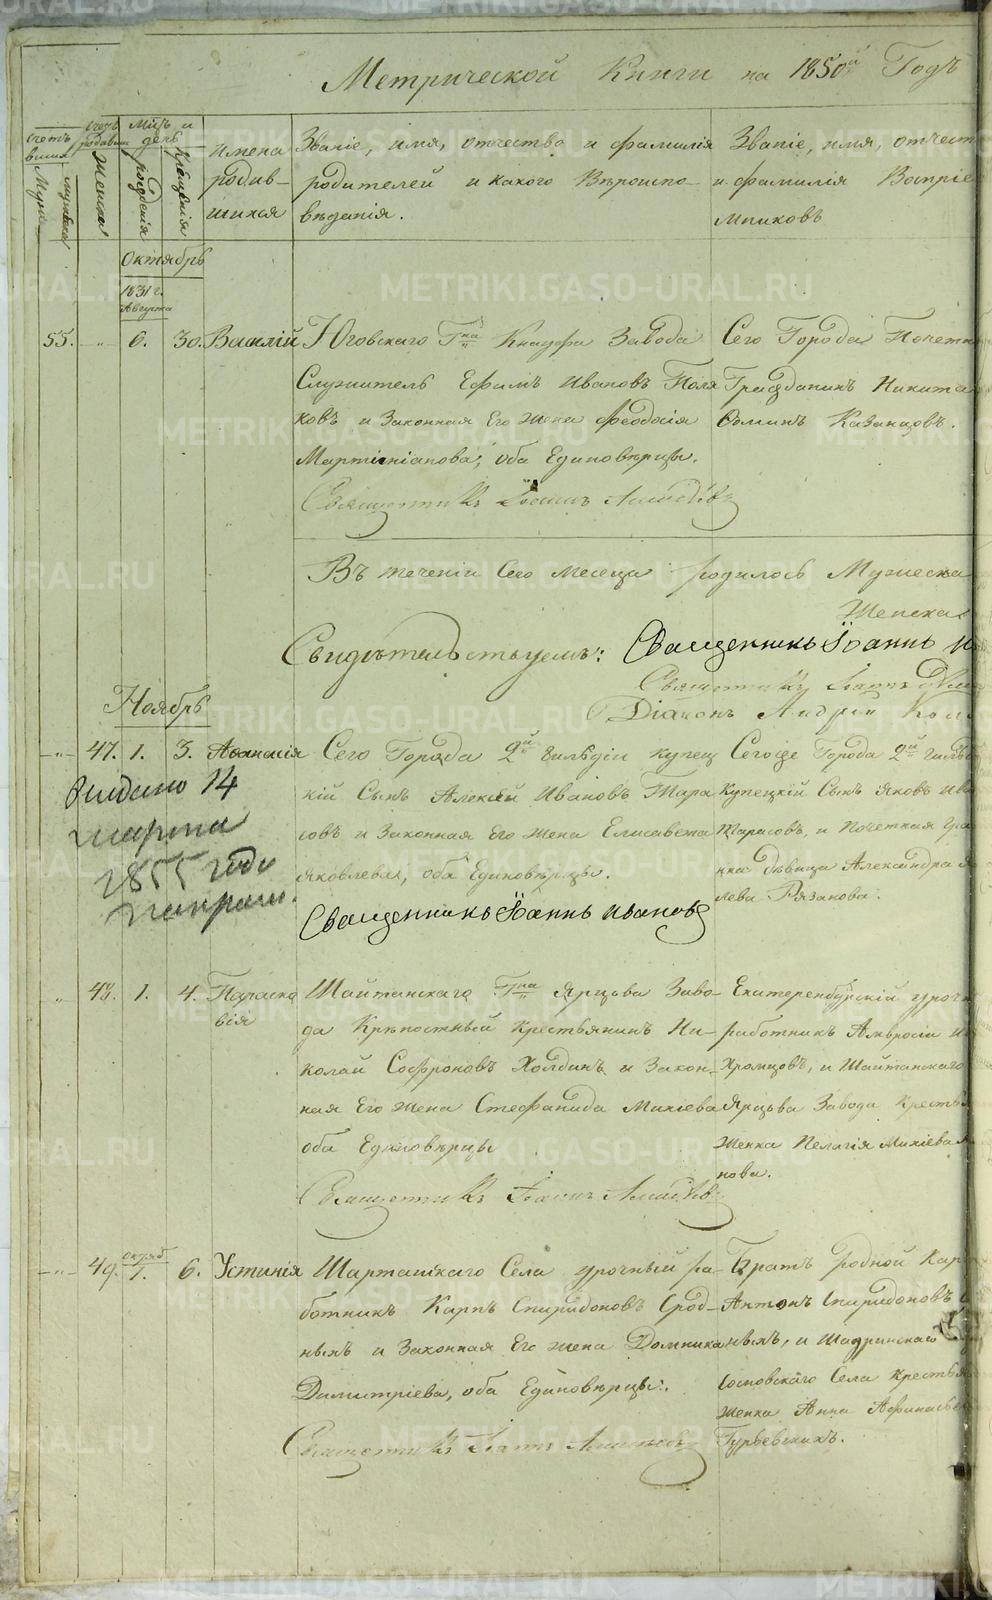 Метрической Книги на 1850й Годъ
счетъ родившихся
Мужеска
Женска
Мцъ и день
рожденія
крещенія
Имена родив-
шихся
Званіе, имя, отчество и фамилія
родителей и какого Вѣроиспо-
вѣданія.
Званіе, имя, отчест
и фамилія Воспріе
мниковъ
Октябрь
1831 г.
Августа
55. -"- 6. 30. Василій
Юговскаго Гна Кнауфа Завода
Служитель Ефимъ Ивановъ Поля
ковъ и Законная Его жена Феодосія
Мартиніанова, оба Единовѣрцы.
Священникъ Іоаннъ
Сего Города Почетн
Гражданинъ Никита
Ѳоминъ Казанцовъ.
Въ теченіи Сего Месеца родилось Мужеска
Женска
Свидѣтельствуемъ: Священникъ Іоаннъ И
Священникъ
Діаконъ Андрей Ком
Ноябрь
-"- 47. 1. 3. Аѳанасія
Сего Города 2й гильдіи купец
кій Сынъ Алексѣй Ивановъ Тара
совъ и Законная Его жена Елисавета
Яковлева, оба Единовѣрцы.
Священникъ Іоаннъ Ивановъ
Сего же Города 2й гильд
Купецкій Сынъ Яковъ Ива
Тарасовъ, и Почетная Гра
нка дѣвица Александра Я
лева Рязанова.
Выдано 14
марта
1855 года
-"- 48. 1. 4. Параске
вія
Шайтанскаго Гна Ярцова Заво-
да Крѣпостный крестьянинъ Ни-
колай Софроновъ Холдинъ и Закон-
ная Его жена Стефанида Михіева
оба Единовѣрцы
Священникъ Іоаннъ
Екатеренбургскій урочн
работникъ Амвросій И
Хромцовъ, и Шайтанскаго
Ярцова Завода Кресть
женка Пелагія Михіева
нова.
Октяб
-"- 49. 1. 6. Устинія
Шарташскаго Села урочный ра-
ботникъ Карпъ Спиридоновъ Срод-
ныхъ и Законная Его жена Домника
Димитріева, оба Единовѣрцы.
Священникъ
Братъ родной Кар
Антонъ Спиридоновъ С
ныхъ, и Шадринскаго
Сосновскаго Села Крестья
женка Анна Афанасье
Гурьевскихъ.
METRIKI.GASO-URAL.RU